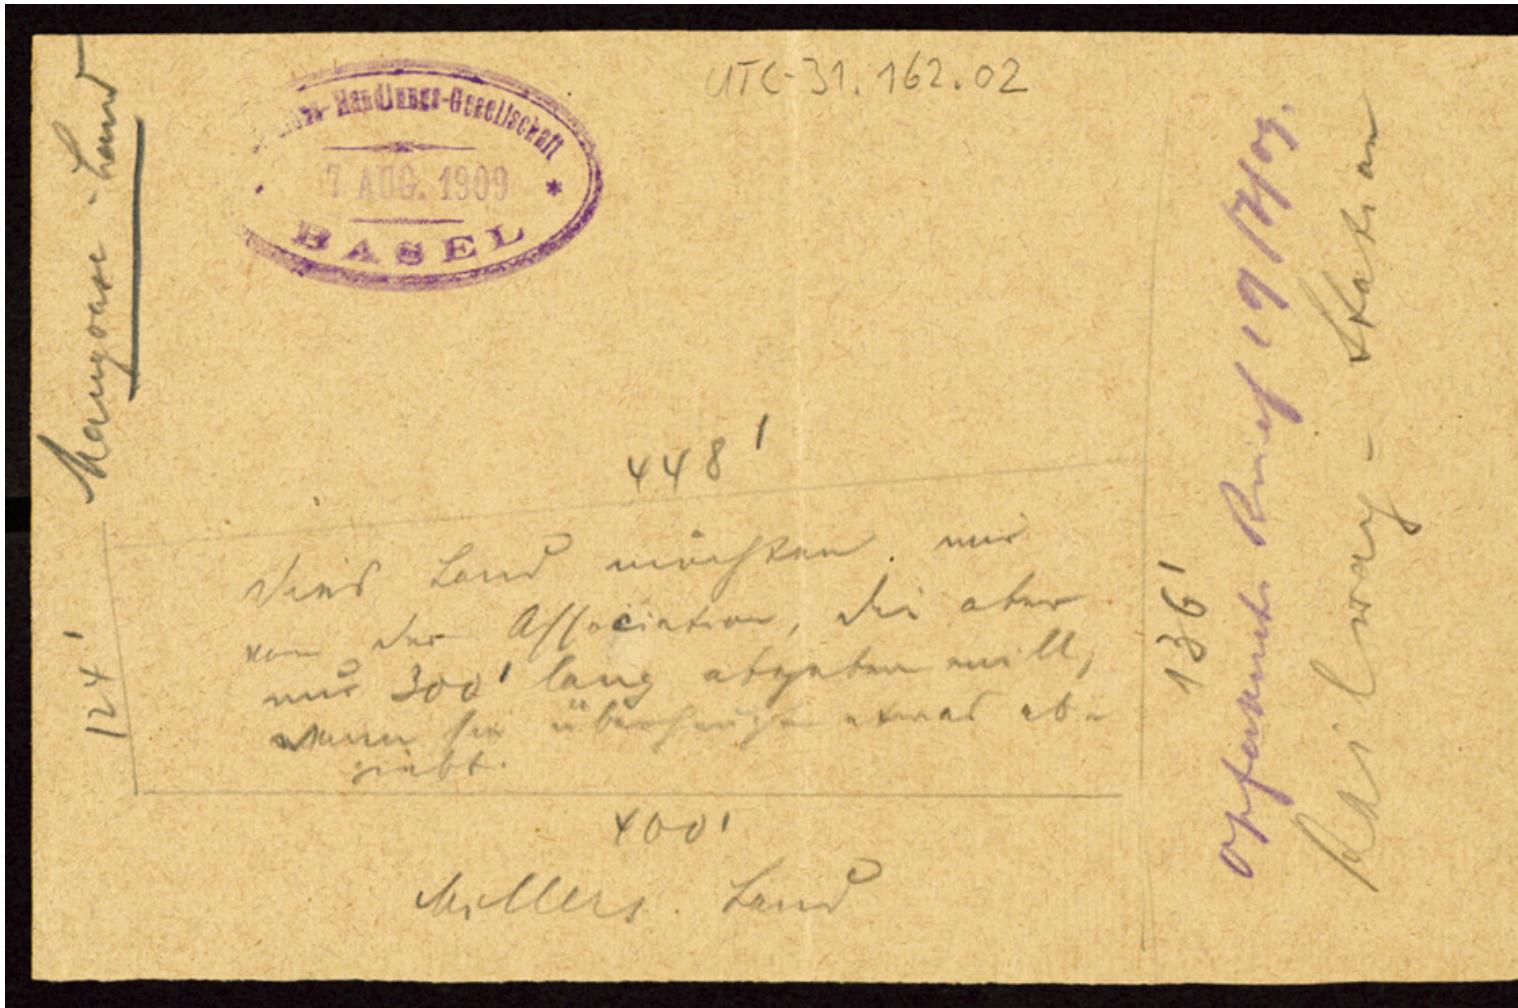 UTC-31.162.02
Handlungs-Gesellschaft
7 AUG. 1909
BASEL
Land
448'
Dies Land möchten wir
von der Association, die aber
nur 300' lang abgeben will,
wenn sie überhaupt etwas ab-
giebt.
124'
136'
400'
Millers Land
Brief 19/7/09.
Railway - Station